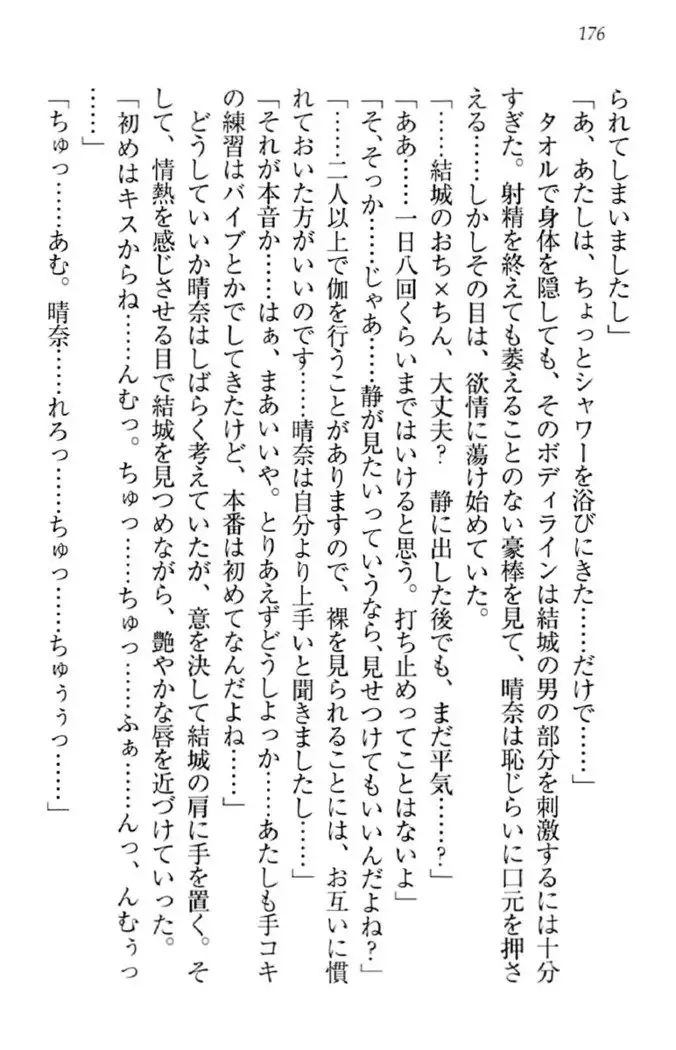 176
られてしまいましたし」
「あ、あたしは、ちょっとシャワーを浴びにきた……だけで……」
タオルで身体を隠しても、そのボディラインは結城の男の部分を刺激するには十分
すぎた。射精を終えても萎えることのない豪棒を見て、晴奈は恥じらいに口元を押さ
える……しかしその目は、欲情に蕩け始めていた。
「……結城のおち×ちん、大丈夫？　静に出した後でも、まだ平気……？」
「ああ……一日八回くらいまではいけると思う。打ち止めってことはないよ」
「そ、そっか……じゃあ……静が見たいっていうなら、見せつけてもいいんだよね？」
「……二人以上で伽を行うことがありますので、裸を見られることには、お互いに慣
れておいた方がいいのです……晴奈は自分より上手いと聞きましたし……」
「それが本音か……はぁ、まあいいや。とりあえずどうしよっか……あたしも手コキ
の練習はバイブとかでしてきたけど、本番は初めてなんだよね……」
どうしていいか晴奈はしばらく考えていたが、意を決して結城の肩に手を置く。そ
して、情熱を感じさせる目で結城を見つめながら、艶やかな唇を近づけていった。
「初めはキスからね……んむっ。ちゅっ……ちゅっ……ふぁ……んっ、んむぅっ
……」
「ちゅっ……あむ。晴奈……れろっ……ちゅっ……ちゅぅぅっ……」